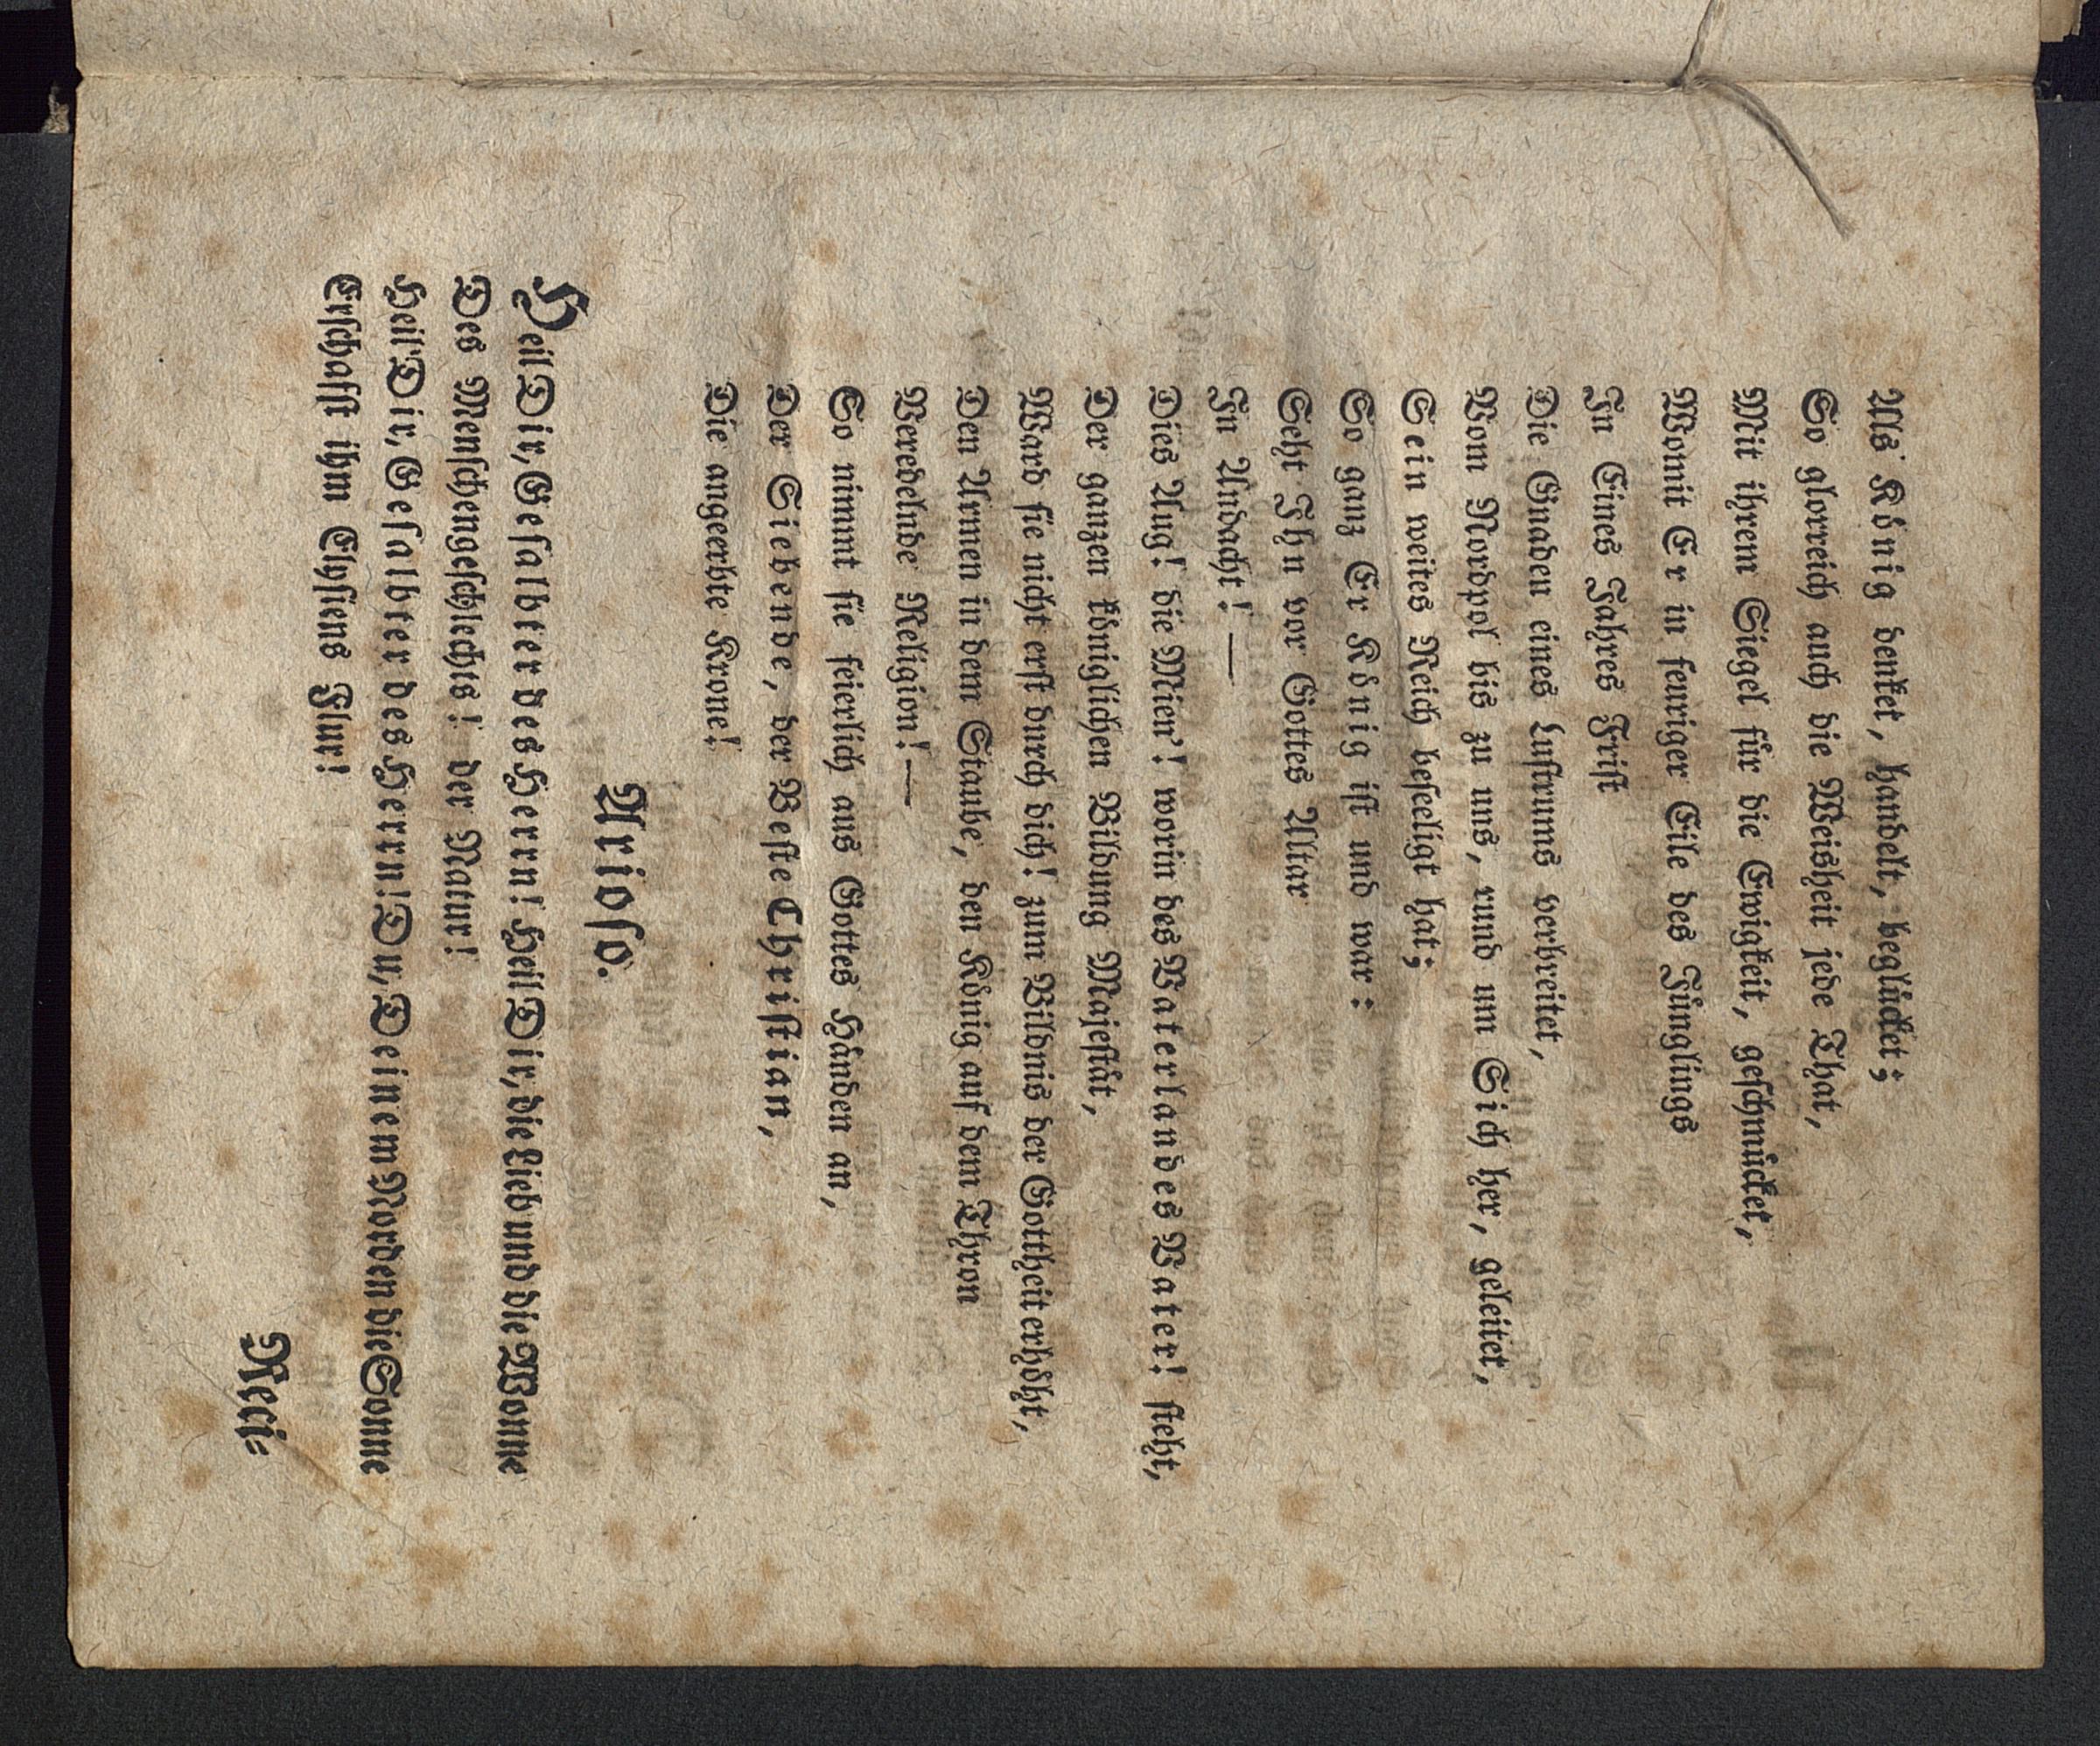 Als König denket, handelt, beglücket;
So glorreich auch die Weisheit jede That,
Mit ihrem Siegel für die Ewigkeit, geschmücket,
Womit Er in feuriger Eile des Jünglings
In Eines Jahres Frist
Die Gnaden eines Lustrums verbreitet,
Vom Nordpol bis zu uns, rund um Sich her, geleitet,
Sein weites Reich beseeligt hat;
So ganz Er König ist und war:
Seht Ihn vor Gottes Altar
In Andacht! —
Dies Aug! die Mien'! worin des Vaterlandes Vater! steht,
Der ganzen königlichen Bildung Majestät,
Ward sie nicht erst durch dich! zum Bildnis der Gottheit erhöht,
Den Armen in dem Staube, den König auf dem Thron
Veredelnde Religion! —
So nimmt sie feierlich aus Gottes Händen an,
Der Siebende, der Beste Christian,
Die angeerbte Krone!
Arioso.
Heil Dir, Gesalbter des Herrn! Heil Dir, die Lieb und die Wonne
Des Menschengeschlechts! der Natur!
Heil Dir, Gesalbter des Herrn! Du, Deinem Norden die Sonne
Erschafft ihm Elysiens Flur!
Reci=